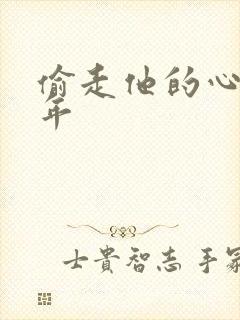 偷走他的心
年
士貴智志 手